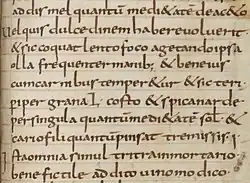 ad dis mel quantū medi&ate deac&o
uel quis dulce din em habere voluerit
&sic oquat lento foco agetando ipsa
olla frequenter manib; & bene uis
cum car nibus temper&ur & sic teri
piper grana l. costo & spicanar de
per singula quantū medi&ate sol. &
cariofili quantū pinsat tremissis. i
sta omnia simul trit rain mor tario
bene fictile addito uino modico.